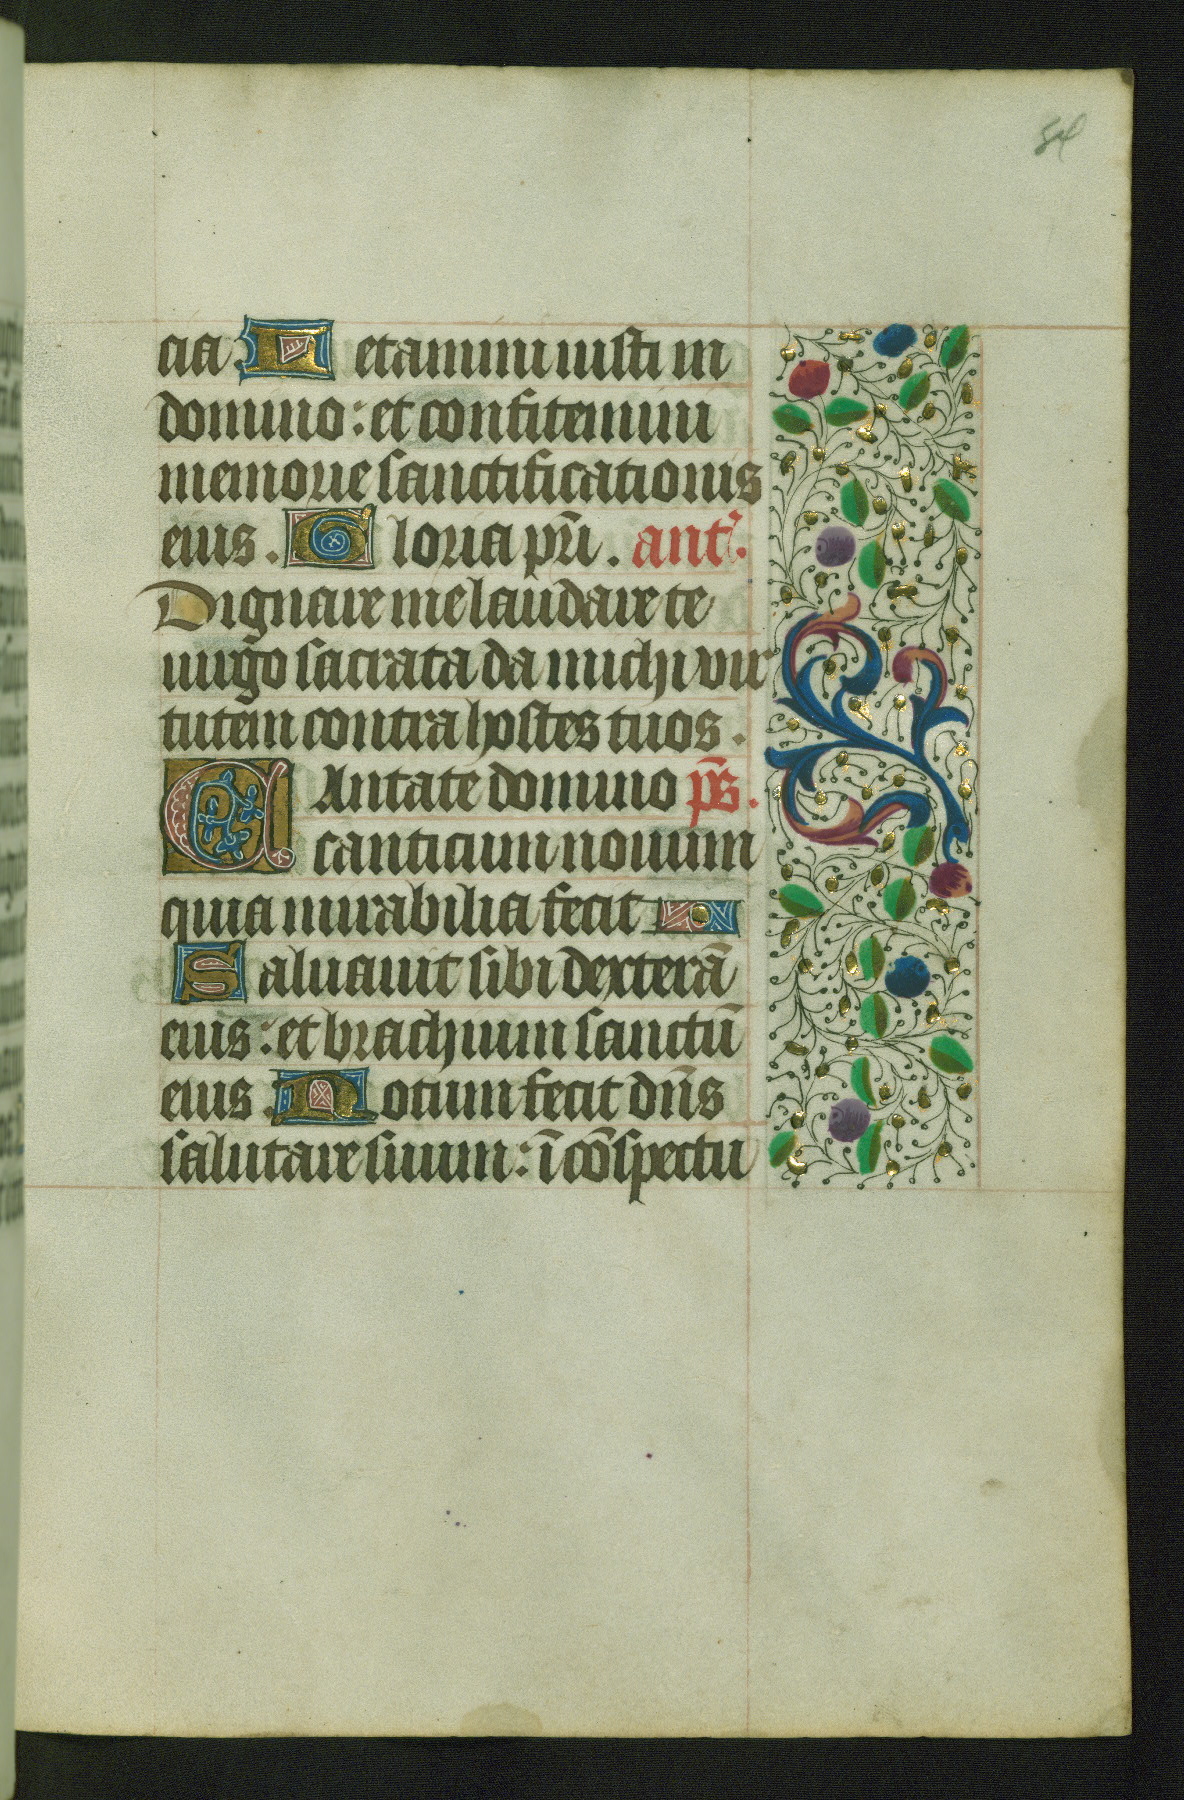 54
cia. Letamini iusti in
domino: et confitemini
memorie sanctificationis
eius. Gloria pr̃i. ant̃.
Dignare me laudare te
uirgo sacrata da michi vir
tutem contra hostes tuos.
CAntate domino ps̃.
canticum nouum
quia mirabilia fecit
Saluauit sibi dexterã
eius: et brachium sanctũ
eius. Notum fecit dñs
salutare suum: ĩ cõspectu